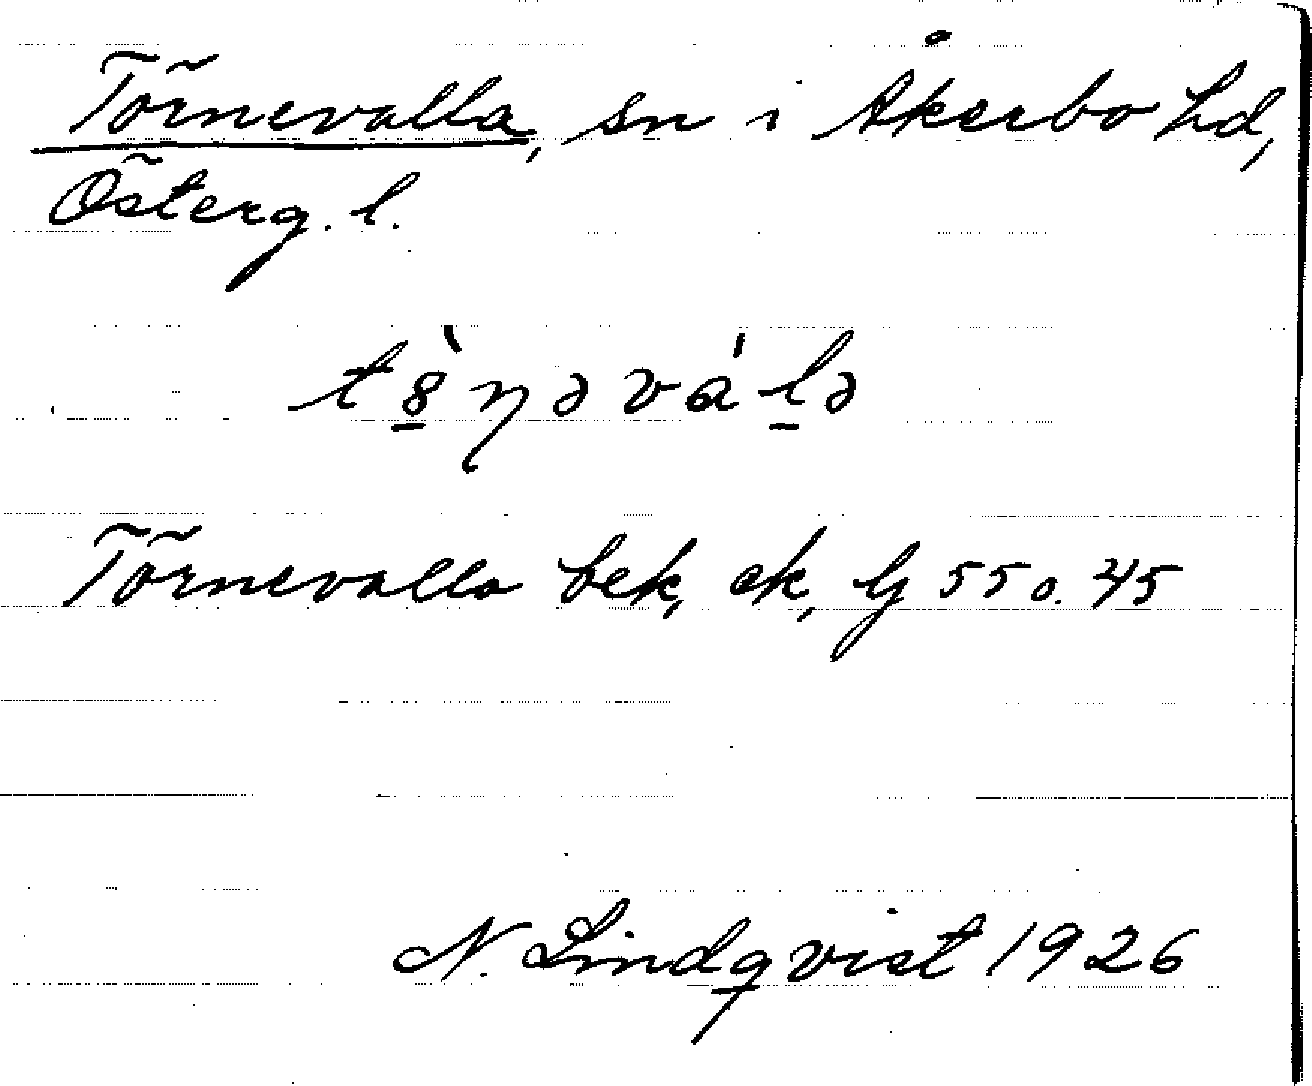 Törnevalla, sn i Åkerbo hd,
Österg. l.
t8̠̀ŋəvál̠ə
Törnevalla bek, ek, Gj 55 o. 45
N. Lindqvist 1926